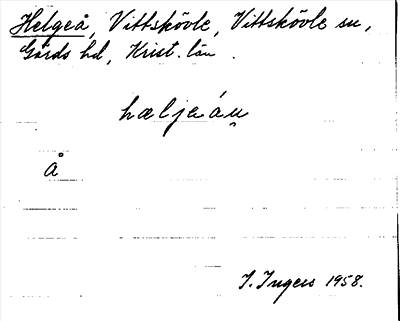 Helgeå, Vittskövle, Vittskövle sn,
Gärds hd, Krist. län.
hæljeáu̯
å
I. Ingers 1958.